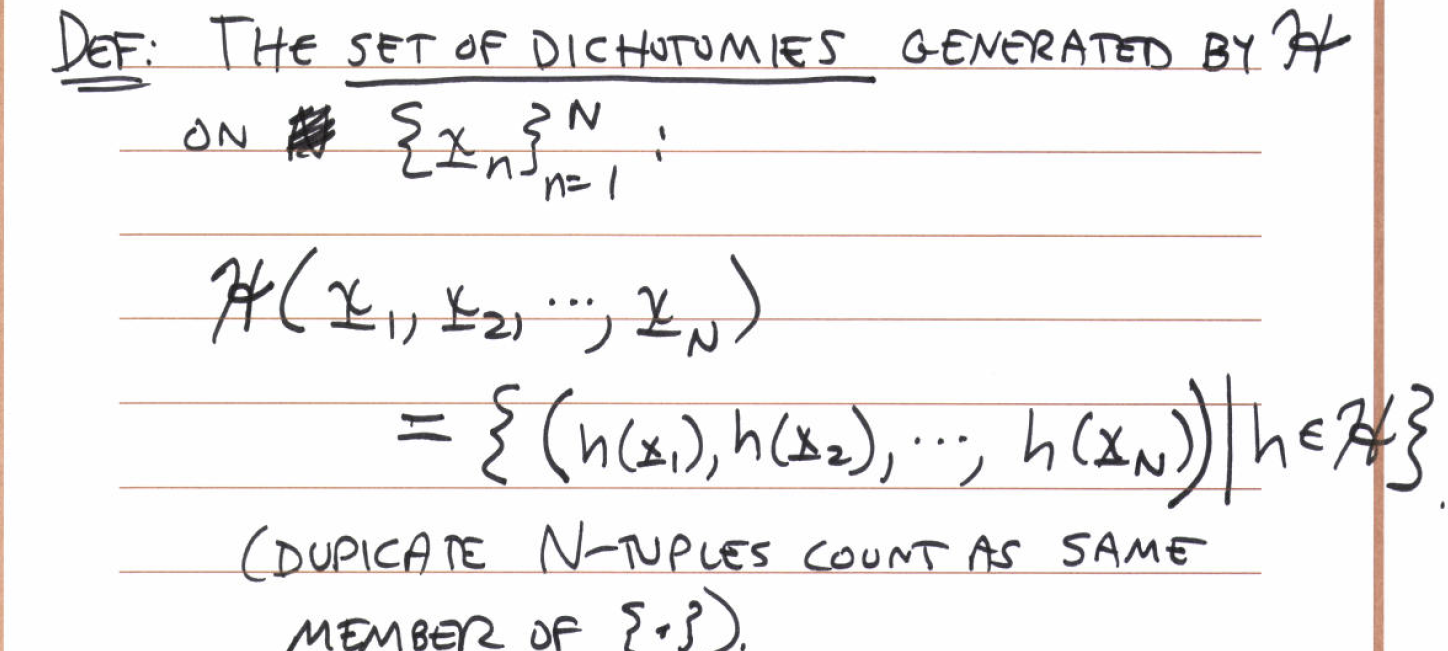 DEF: THE SET OF DICHOTOMIES GENERATED BY ℋ
ON {x̲ₙ}ᴺₙ₌₁ :
ℋ(x̲₁, x̲₂, ⋯, x̲_N)
= {(h(x̲₁), h(x̲₂), ⋯, h(x̲_N)) | h ∈ ℋ}.
(DUPICATE N-TUPLES COUNT AS SAME
MEMBER OF {·}).